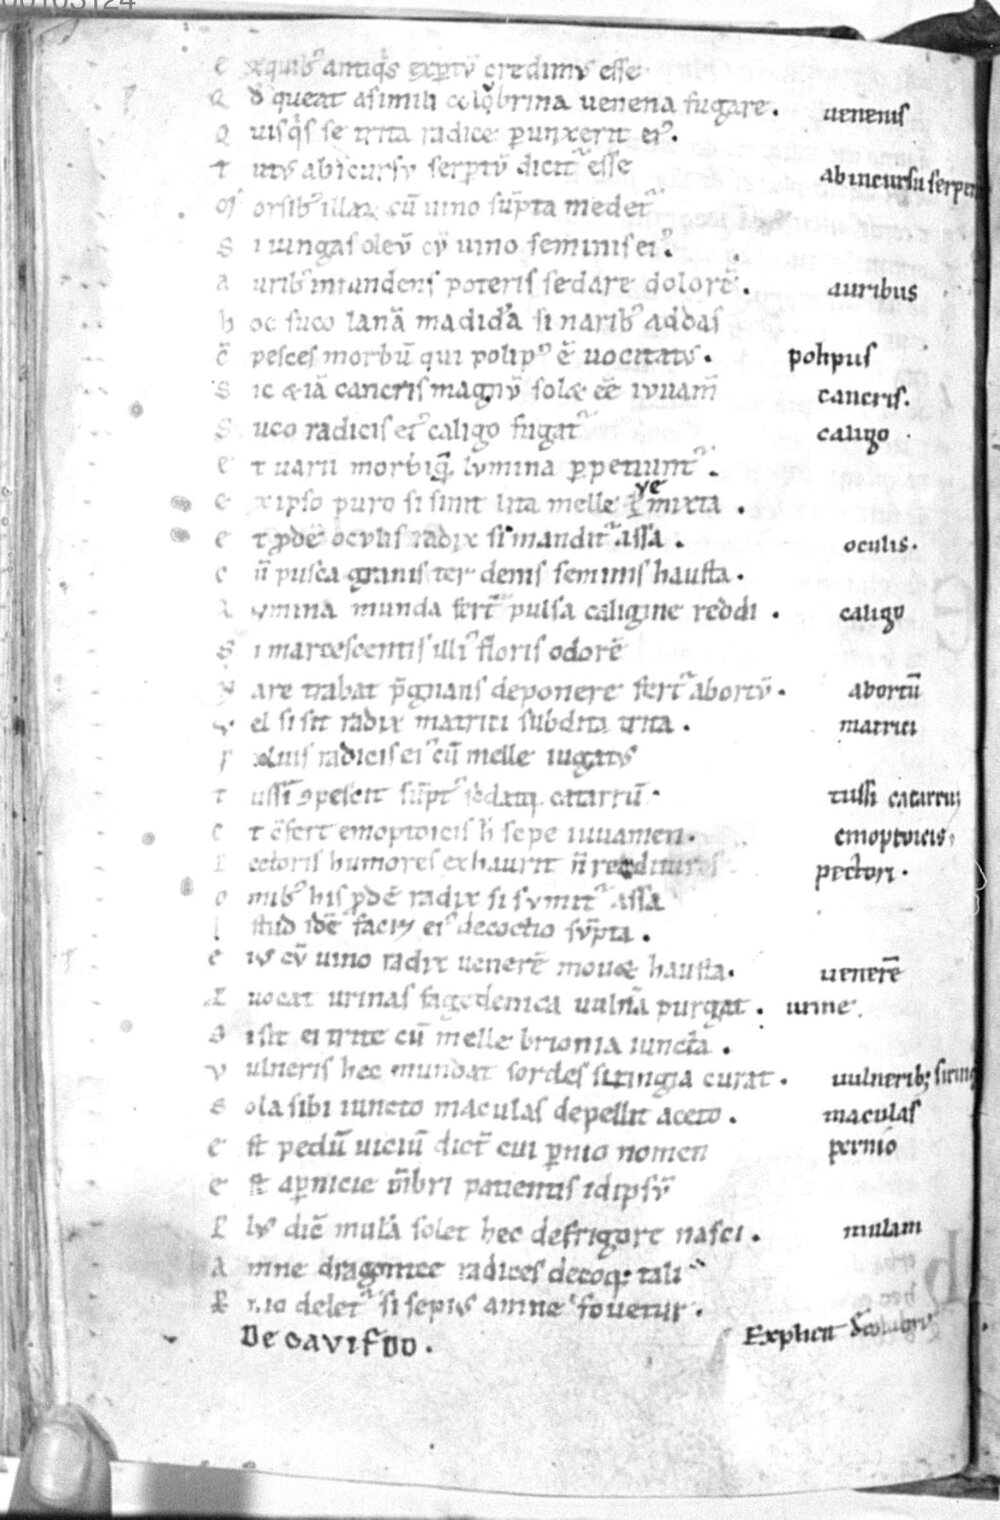 00103124
e xquib᷒ antiq̇s exp̱tū credimꝰ esse
Q d queat asimili colobrina uenena fugare. uenenis
Q uisq̇s se trita radice p̱unxerit eiꝰ.
t utꝰ abicursu serp̱tū dicit᷒ esse ab incursu serpen
m orsib᷒ illa cū uino sūpta medet᷒
S i iungas oleū cū uino seminis eiꝰ.
a urib᷒ infundens poteris sedare dolorē. auribus
h oc suco lanā madidā si narib᷒ addas
c̄ pesces morbū qui polipꝰ ē uocitatus. polipus
S ic & iā cancris magnū solet eē iuuam̄ cancris.
S uco radicis eiꝰ caligo fugat᷒ caligo
e t uarii morbiq̄ lumina p̱petiunt᷒.
e x ipso puro si sint lita melle ye mixta.
e t p̱dē oculis radix si mandit᷒ assa. oculis.
c ū pusca granis ter denis seminis hausta.
L umina munda fert᷒ pulsa caligine reddi. caligo
S i marcescentis illiꝰ floris odorē
N are trahat p̄gnans deponere fert᷒ abortū. abortū
v el si sit radix matrici subdita trita. matrici
p uluis radicis eiꝰ cū melle iugatus
t ussī ꝯpescit sūpt᷒ sedatq; catarrū. tussi catarrus
c t c̄fert emoptoicis h̄ sepe iuuamen. emoptoicis.
P ectoris humores exhaurit pectori.
o mib᷒ his p̱dē radix si sumit᷒ assa
I stud idē facit eiꝰ decoctio sūpta.
e iꝰ cū uino radix uenerē mouet hausta. uenerē
P uocat urinas fagedenica uulnā purgat. urine.
S i sit ei trite cū melle brionia iuncta.
v ulneris hec mundat sordes siringia curat. uulnerib; siring
S ola sibi iuncto maculas depellit aceto. maculas
e st pedū uiciū dict᷒ cui p̱nio nomen pernio
e st ap̱nicie m̄bri patientis idipsū
P lꝰ dicē mulā solet hec defrigore nasci. mulam
A mne dragontee radices decoq; tali
P nio delet᷒ si sepius amne fouetur.
De GAVISDO. Explicit